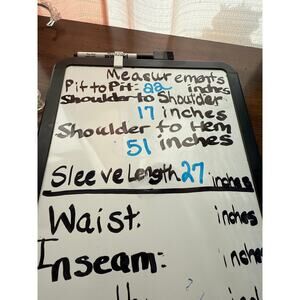 Measurements
Pit to Pit: 22 inches
Shoulder to Shoulder
17 inches
Shoulder to Hem
51 inches
Sleeve Length. 27 inches
Waist: inches
Inseam: inches